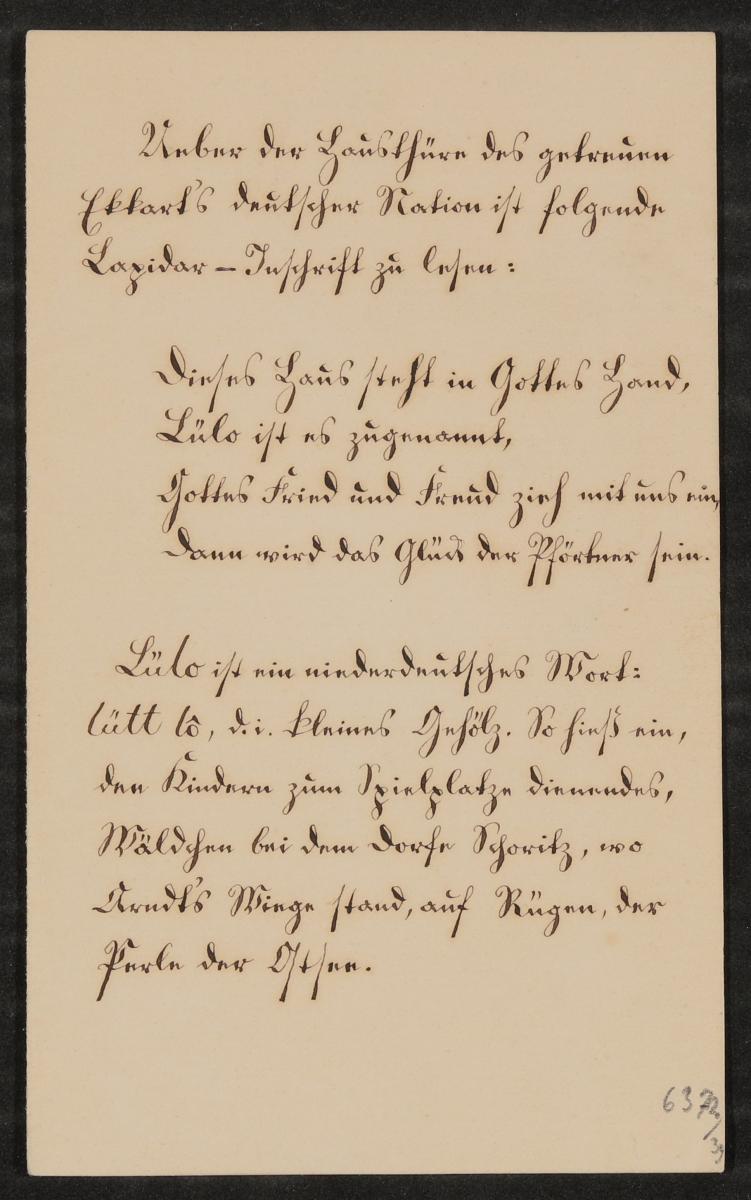 Ueber der Hausthüre des getreuen
Ekkart's deutscher Nation ist folgende
Lapidar-Inschrift zu lesen:
Dieses Haus steht in Gottes Hand,
Lülo ist es zugenannt,
Gottes Fried und Freud zieh mit uns ein,
Dann wird das Glück der Pförtner sein.
Lülo ist ein niederdeutsches Wort:
lütt lô, d. i. kleines Gehölz. So hieß ein,
den Kindern zum Spielplatze dienendes,
Wäldchen bei dem Dorfe Schoritz, wo
Arndt's Wiege stand, auf Rügen, der
Perle der Ostsee.